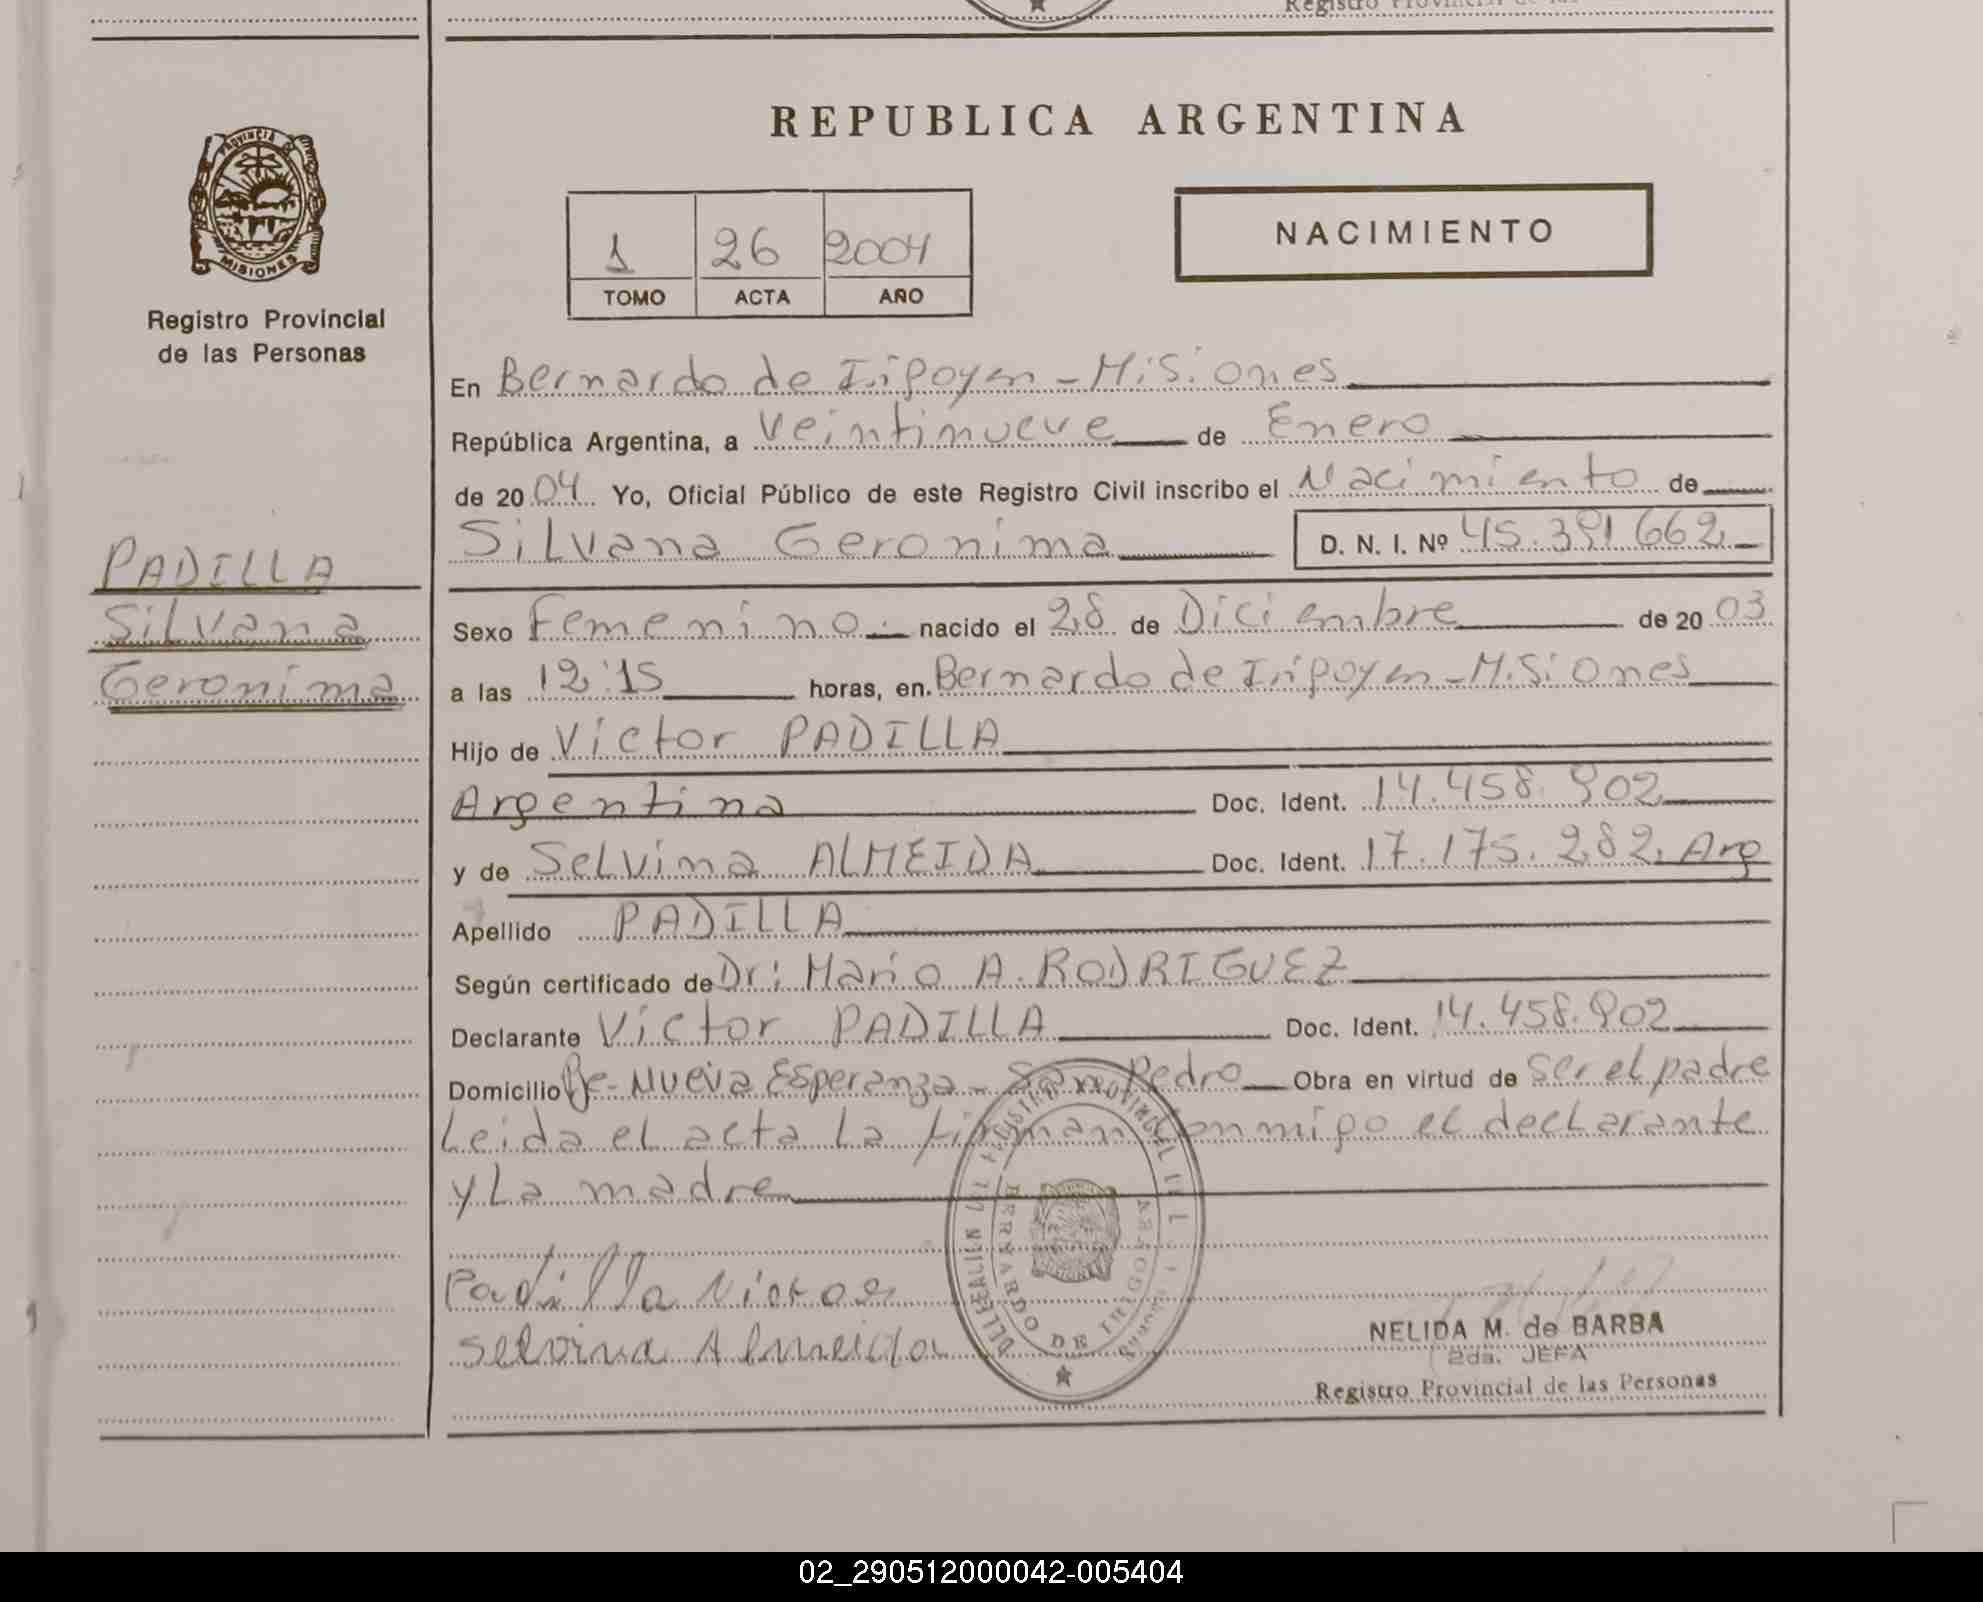 Registro Provincial de las
REPUBLICA ARGENTINA
PROVINCIA
MISIONES
Registro Provincial
de las Personas
1 26 2004
TOMO ACTA AÑO
NACIMIENTO
En Bernardo de Irigoyen - Misiones
República Argentina, a Veintinueve de Enero
de 2004 Yo, Oficial Público de este Registro Civil inscribo el Nacimiento de
Silvana Geronima D. N. I. Nº 45.391.662
PADILLA
Silvana
Geronima
Sexo Femenino.- nacido el 28 de Diciembre de 2003
a las 12:15 horas, en Bernardo de Irigoyen - Misiones
Hijo de Victor PADILLA
Argentina Doc. Ident. 14.458.902
y de Selvina ALMEIDA Doc. Ident. 17.175.282. Arg
Apellido PADILLA
Según certificado de Dr: Mario A. RODRIGUEZ
Declarante Victor PADILLA Doc. Ident. 14.458.902
Domicilio Pje- Nueva Esperanza - San Pedro Obra en virtud de ser el padre
Leida el acta la firman conmigo el declarante
y la madre
Padilla Victor
Selvina Almeida
BERNARDO DE IRIGOYEN
NELIDA M. de BARBA
2da. JEFA
Registro Provincial de las Personas
02_290512000042-005404